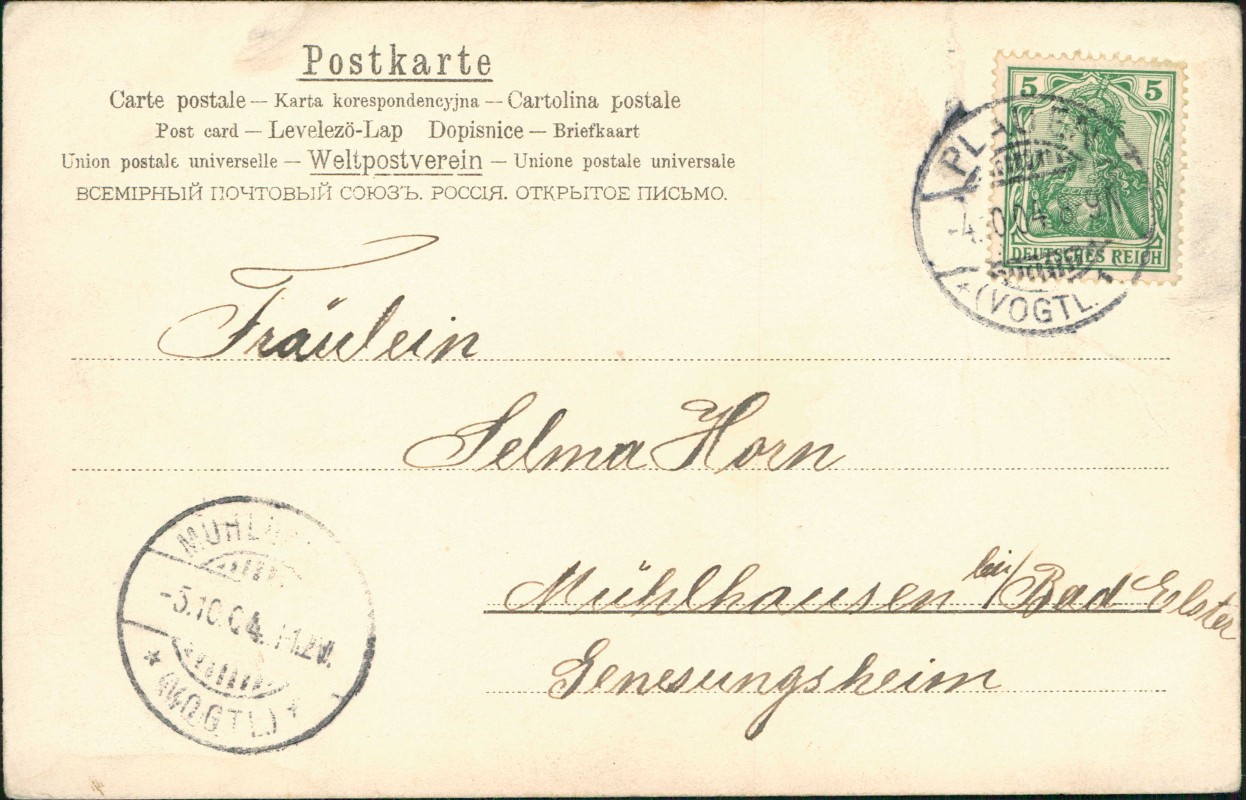 Postkarte
Carte postale — Karta korespondencyjna — Cartolina postale
Post card — Levelező-Lap Dopisnice — Briefkaart
Union postale universelle — Weltpostverein — Unione postale universale
ВСЕМІРНЫЙ ПОЧТОВЫЙ СОЮЗЪ. РОССІЯ. ОТКРЫТОЕ ПИСЬМО.
5 5
DEUTSCHES REICH
PLAUEN
(VOGTL.
Fräulein
Selma Horn
Mühlhausen bei/Bad Elster
Genesungsheim
-5.10.04.
(VOGTL.)